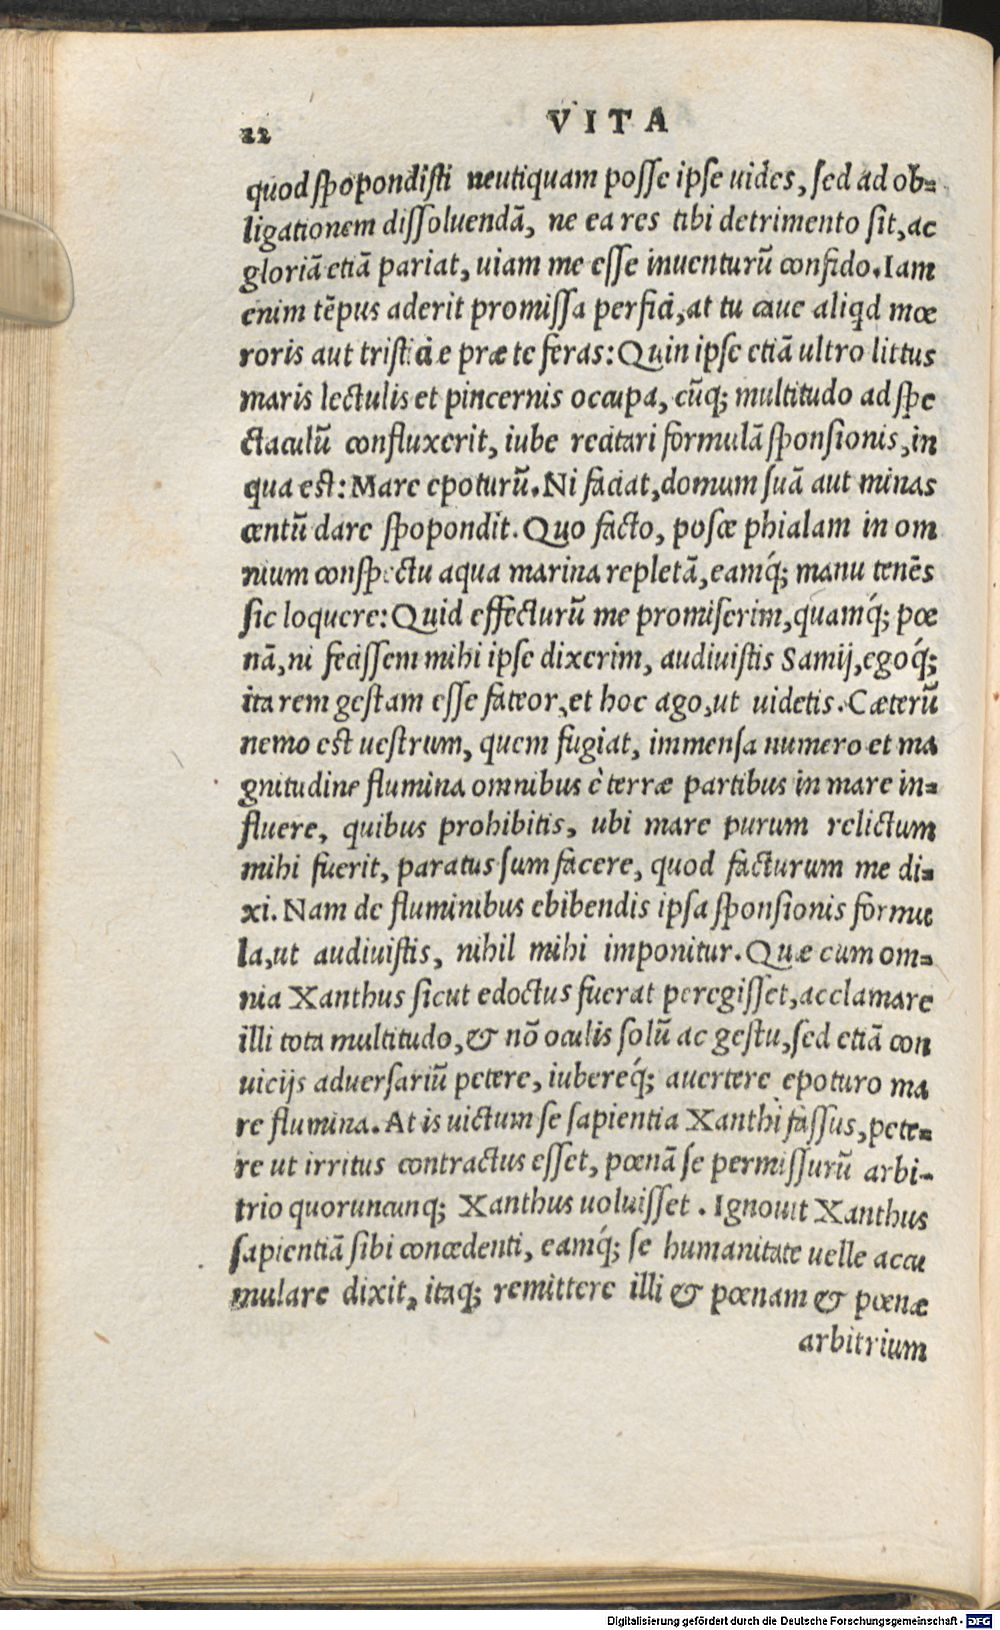 22
VITA
quod spopondisti neutiquam posse ipse uides, sed ad ob-
ligationem dissoluendā, ne ea res tibi detrimento sit, ac
gloriā etiā pariat, uiam me esse inuenturū confido. Iam
enim tēpus aderit promissa perfici, at tu caue aliqd mœ
roris aut tristiciæ præ te feras: Quin ipse etiā ultro littus
maris lectulis et pincernis occupa, cūq; multitudo ad spe
ctaculū confluxerit, iube recitari formulā sponsionis, in
qua est: Mare epoturū. Ni faciat, domum suā aut minas
centū dare spopondit. Quo facto, posce phialam in om
nium conspectu aqua marina repletā, eamq́; manu tenēs
sic loquere: Quid effecturū me promiserim, quamq́; pœ
nā, ni fecissem mihi ipse dixerim, audiuistis Samij, egoq́;
ita rem gestam esse fateor, et hoc ago, ut uidetis. Cæterū
nemo est uestrum, quem fugiat, immensa numero et ma
gnitudine flumina omnibus è terræ partibus in mare in-
fluere, quibus prohibitis, ubi mare purum relictum
mihi fuerit, paratus sum facere, quod facturum me di-
xi. Nam de fluminibus ebibendis ipsa sponsionis formu
la, ut audiuistis, nihil mihi imponitur. Quæ cum om-
nia Xanthus sicut edoctus fuerat peregisset, acclamare
illi tota multitudo, & nō oculis solū ac gestu, sed etiā con
uicijs aduersariū petere, iubereq́; auertere epoturo ma
re flumina. At is uictum se sapientia Xanthi fassus, pete-
re ut irritus contractus esset, pœnā se permissurū arbi-
trio quoruncunq; Xanthus uoluisset. Ignouit Xanthus
sapientiā sibi concedenti, eamq́; se humanitate uelle accu
mulare dixit, itaq; remittere illi & pœnam & pœnæ
arbitrium
Digitalisierung gefördert durch die Deutsche Forschungsgemeinschaft - DFG